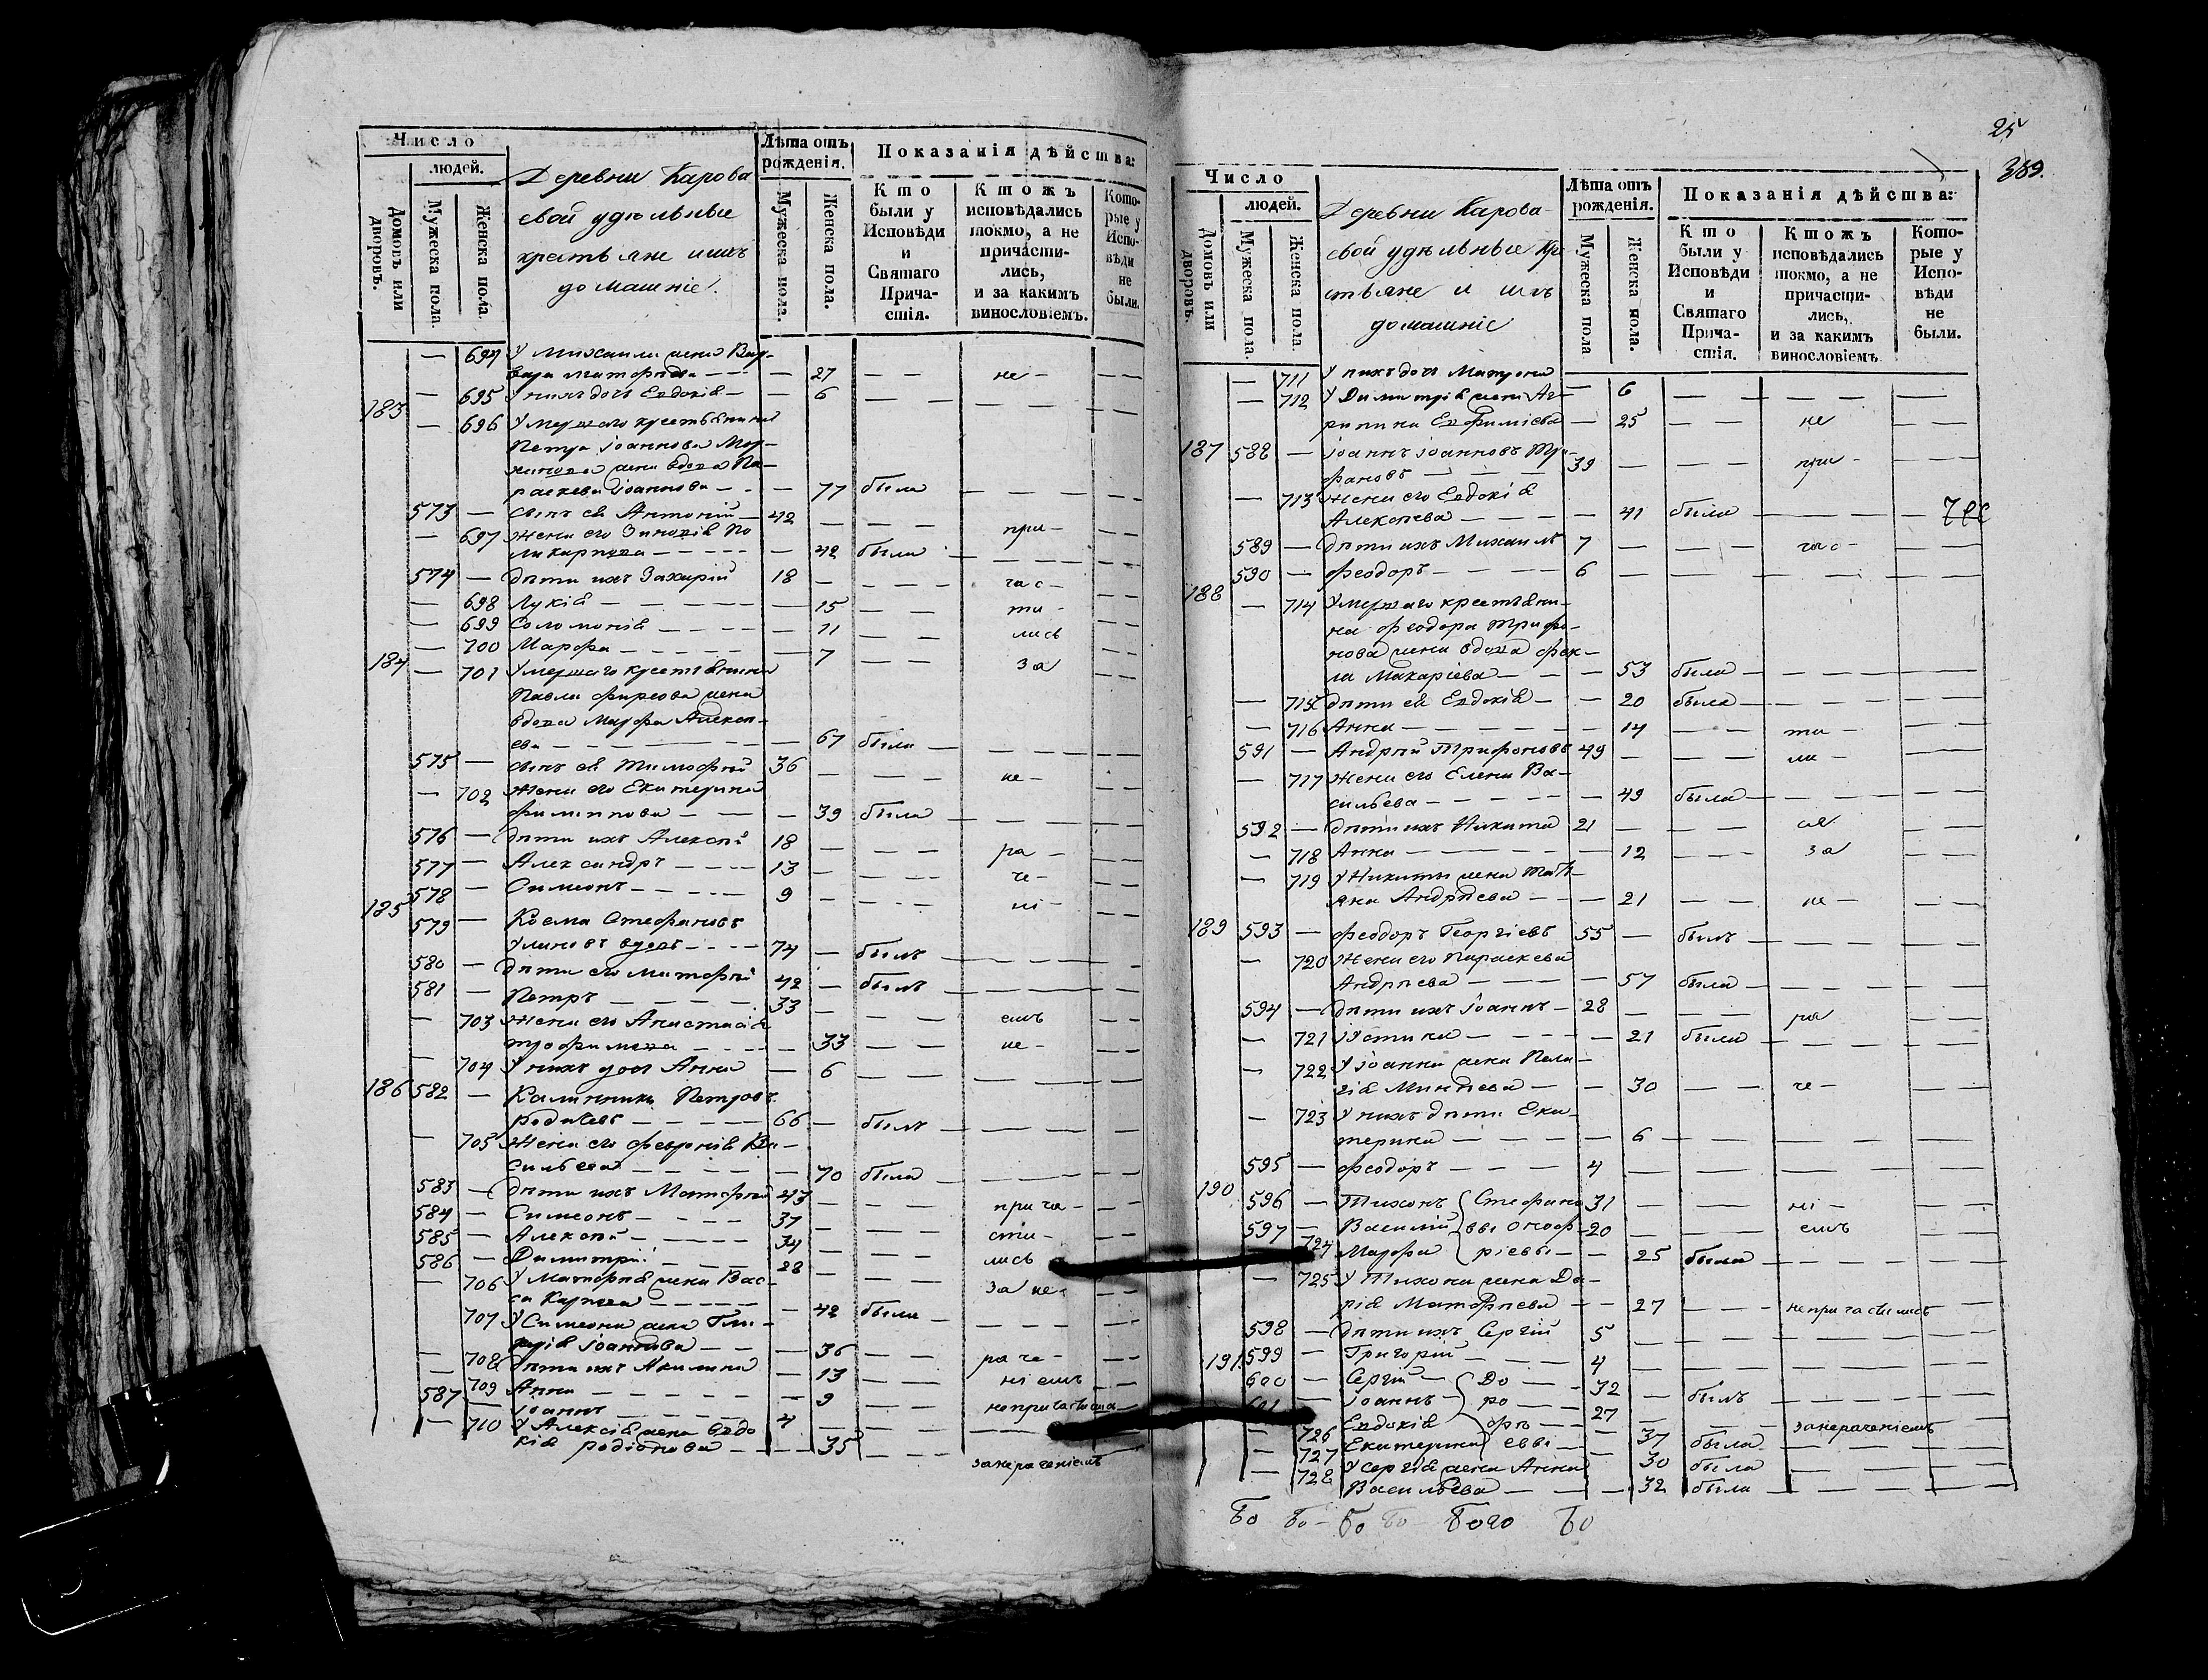 Число
людей.
Домовъ или дворовъ.
Мужеска пола.
Женска пола.
Деревни Карова
евой удѣльные
крестьяне и ихъ
домашніе.
Лѣта отъ рожденія.
Мужеска пола.
Женска пола.
Показанія дѣйства:
Кто были у Исповѣди и Святаго Причастія.
Ктожъ исповѣдались токмо, а не причастились, и за какимъ винословіемъ.
Которые у Исповѣди не были.
— 694 У Михаила жена Вар-
вара Матѳѣева — — — 27 — — не — — —
— 695 У нихъ дочь Евдокія — — 6 — — — — —
183 — 696 Умершаго крестьянина
Петра Іоаннова
жена вдова Па-
раскева Іоаннова — — — 77 была — — — — —
573 — сынъ ея Антоній — 42 — — — при — — —
— 697 Жена его Зиновія По
ликарпова — — — — — 42 была — — — — —
574 — Дѣти ихъ Захарій 18 — — — — час — — —
— 698 Лукія — — — — — 15 — — ти — — —
— 699 Соломонія — — — — — 11 — — лись — —
— 700 Марѳа — — — — — 7 — — за — —
184 — 701 Умершаго крестьянина
Павла Фирсова жена
вдова Марѳа Алексѣ-
ева — — — — — 67 была — — — — —
575 — сынъ ея Тимоѳей 36 — — — не — — —
— 702 Жена его Екатерина
Филиппова — — — 39 была — — — — —
576 — Дѣти ихъ Алексѣй 18 — — — — ра — — —
577 — Александръ — — — 13 — — — — че — — —
578 — Симеонъ — — — — 9 — — — — ні — — —
185 579 — Косма Стефановъ
Улиновъ вдовъ — — — 74 — былъ — — — — —
580 — Дѣти его Матѳей 42 — былъ — — — — —
581 — Петръ — — — — 33 — — — — емъ — —
— 703 Жена его Анастасія
Трофимова — — — — 33 — — не — — —
— 704 У нихъ дочь Анна — 6 — — — — — —
186 582 — Каллиникъ Петровъ
Родинъ — — — — 66 — былъ — — — — —
— 705 Жена его Февронія Ва-
сильева — — — — — 70 была — — — — —
583 — Дѣти ихъ Матѳей 43 — — — — прича — — —
584 — Симеонъ — — — — 37 — — — — сти — — —
585 — Алексѣй — — — — 34 — — — — лись — —
586 — Димитрій — — — 28 — — — — за не — — —
— 706 У Матѳея жена Вас-
са Карпова — — — — — 42 была — — — — —
707 У Симеона жена Гли-
керія Іоаннова — — — 36 — — раче — — —
— 708 Дѣти ихъ Акилина — 13 — — ніемъ — —
— 709 Анна — — — — — 9 — — не причастила — —
587 — Іоаннъ — — — — 4 — — — — — — —
— 710 У Алексія жена Евдо
кія Родіонова — — — 35 — — за нераченіемъ
25
389.
Число
людей.
Домовъ или дворовъ.
Мужеска пола.
Женска пола.
Деревни Карова-
евой удѣльные кре
стьяне и ихъ
домашніе
Лѣта отъ рожденія.
Мужеска пола
Женска пола.
Показанія дѣйства:
Кто были у Исповѣди и Святаго Причастія.
Ктожъ исповѣдались токмо, а не причастились, и за какимъ винословіемъ
Которые у Исповѣди не были.
— 711 У нихъ дочь Матрона — 6 — — — — — —
— 712 У Димитрія жена Аг-
рипина Евфиміева — 25 — — не — —
187 588 — Іоаннъ Іоанновъ Три-
фановъ — — — 39 — — — при — — —
— 713 Жена его Евдокія
Алексѣева — — — — 41 была — — —
589 — Дѣти ихъ Михаилъ 7 — — — час — — —
590 — Ѳеодоръ — — — — 6 — — — — — — —
188 — 714 Умершаго крестьяни-
на Ѳеодора Трифо-
нова жена вдова Ѳек-
ла Макаріева — — — 53 была — — — — —
— 715 Дѣти ея Евдокія — — 20 была — — — — —
— 716 Анна — — — — — 14 — — ти — — —
591 — Андрей Трифоновъ 49 — — — ли — — —
— 717 Жена его Елена Ва-
сильева — — — — — 49 была — — — — —
592 — Дѣти ихъ Никита 21 — — — ся — —
— 718 Анна — — — — — 12 — — за — —
— 719 У Никиты жена Тать-
яна Андрѣева — — — 21 — — не — — —
189 593 — Ѳеодоръ Георгіевъ 55 — былъ — — — — —
— 720 Жена его Параскева
Андрѣева — — — — 57 была — — — — —
594 — Дѣти ихъ Іоаннъ — 28 — — — ра — —
— 721 Іустина — — — — 21 была — — — — —
— 722 У Іоанна жена Пела-
гія Минѣева — — 30 — — че — — —
— 723 У нихъ дѣти Ека-
терина — — — — 6 — — — — — —
595 — Ѳеодоръ — — — 4 — — — — — — —
190 596 — Тихонъ Стефано 31 — — — ні — — —
597 — Василій вы Оноф- 20 — — — емъ — —
724 Марѳа ріевы — — 25 была — — — — —
— 725 У Тихона жена Да-
рія Матѳѣева — — 27 — — не причастились — —
598 — Дѣти ихъ Сергій 5 — — — — — — —
599 — Григорій — — — 4 — — — — — — —
191 600 — Сергій — До — — 32 — былъ — — — — —
601 — Іоаннъ — ро — — 27 — — — за нераченіемъ
— 726 Евдокія ѳѣ — — — 37 была — — — — —
— 727 Екатерина евы — — 30 была — — — — —
— 728 У Сергія жена Анна
Васильева — — — 32 была — — — — —
Бо Бо — Бо Бо — Бого Бо